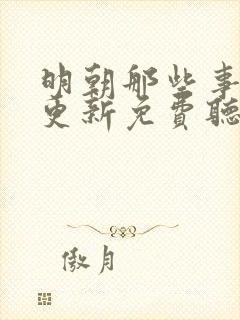 明朝那些事
更新免費聽
傲月